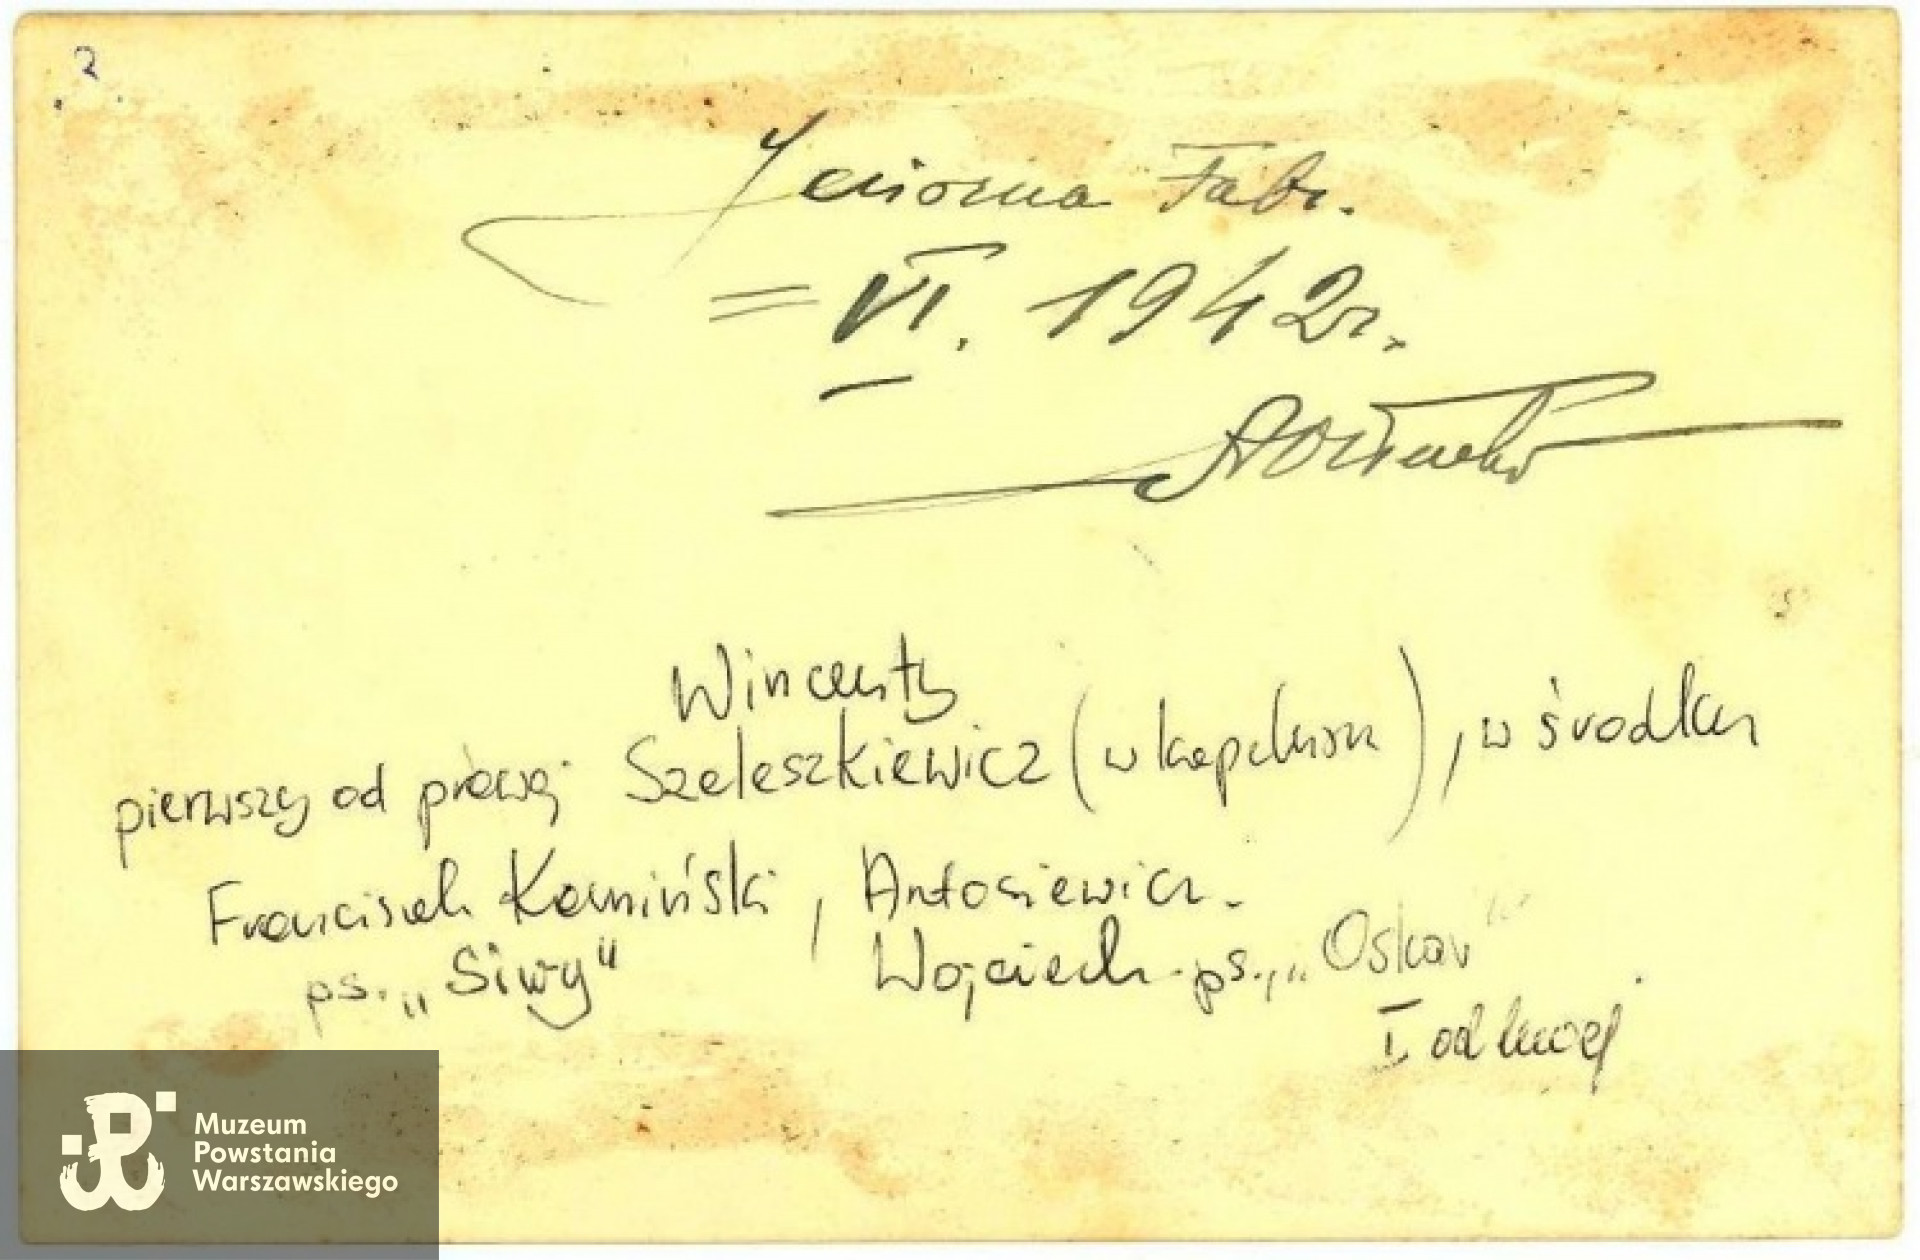 2
Jeziorna Fabr.
= VI. 1942 r.
Wincenty
pierwszy od prawej Szeleszkiewicz (w kapeluszu), w środku
Franciszek Kamiński, Antosiewicz
ps. „Siwy" Wojciech ps. „Oskar"
I od lewej
Muzeum
Powstania
Warszawskiego